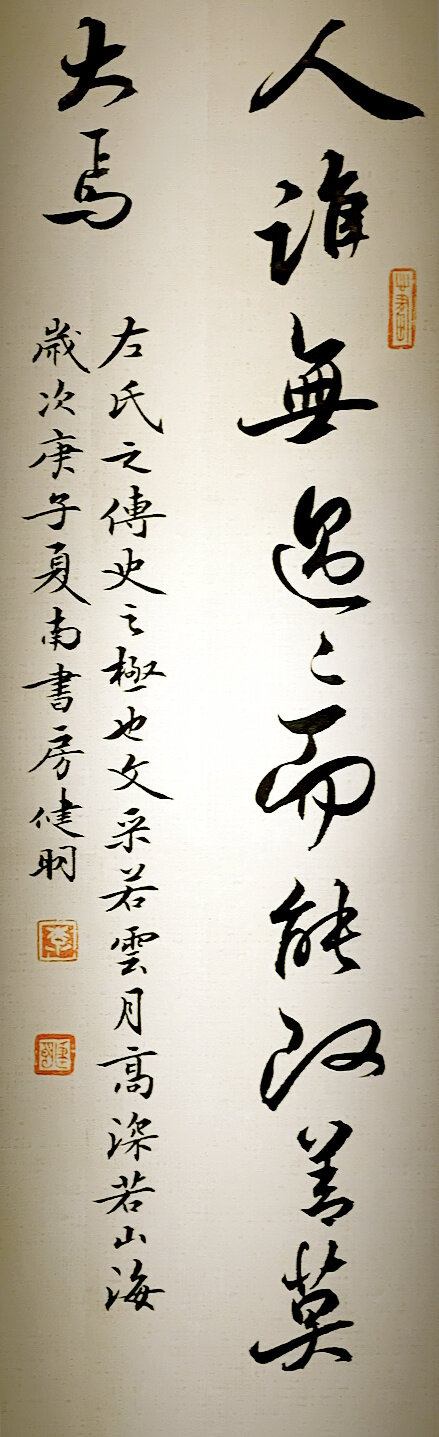 人誰無過〻而能改善莫
大焉
左氏之傳史之極也文采若雲月高深若山海
歲次庚子夏南書房健明
李